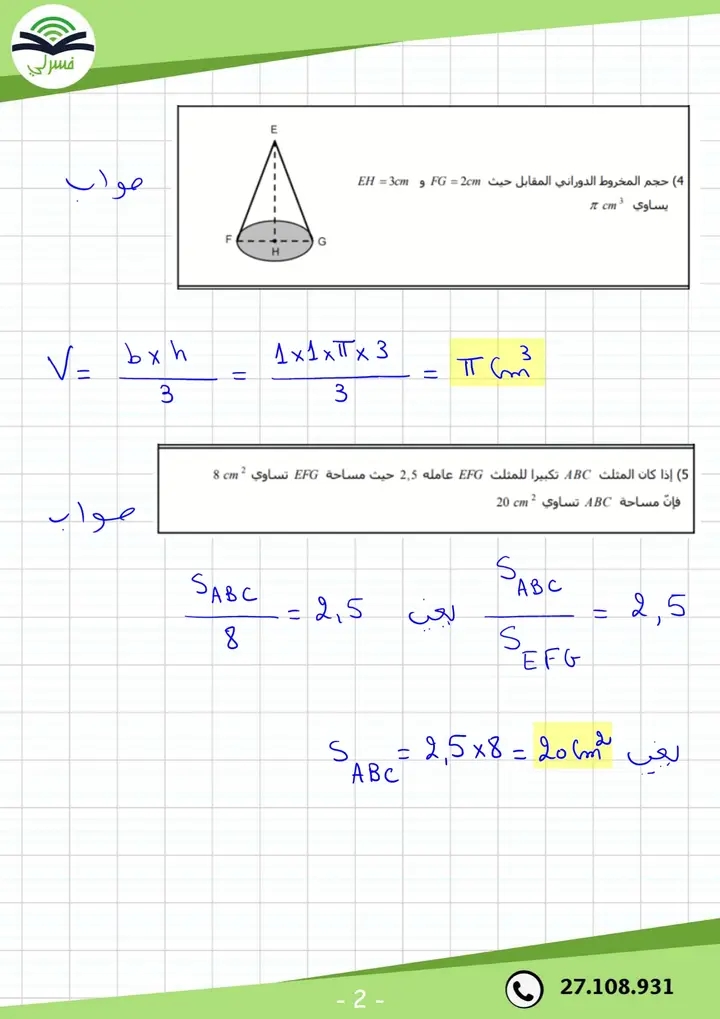 فسرلي
4) حجم المخروط الدوراني المقابل حيث FG = 2cm و EH = 3cm
يساوي π cm³
E
F
G
H
صواب
V = (b × h)/3 = (1×1×π×3)/3 = π Cm³
5) إذا كان المثلث ABC تكبيرا للمثلث EFG عامله 2,5 حيث مساحة EFG تساوي 8 cm²
فإنّ مساحة ABC تساوي 20 cm²
صواب
S_ABC/S_EFG = 2,5 يعني S_ABC/8 = 2,5
يعني S_ABC = 2,5×8 = 20 Cm²
- 2 -
27.108.931